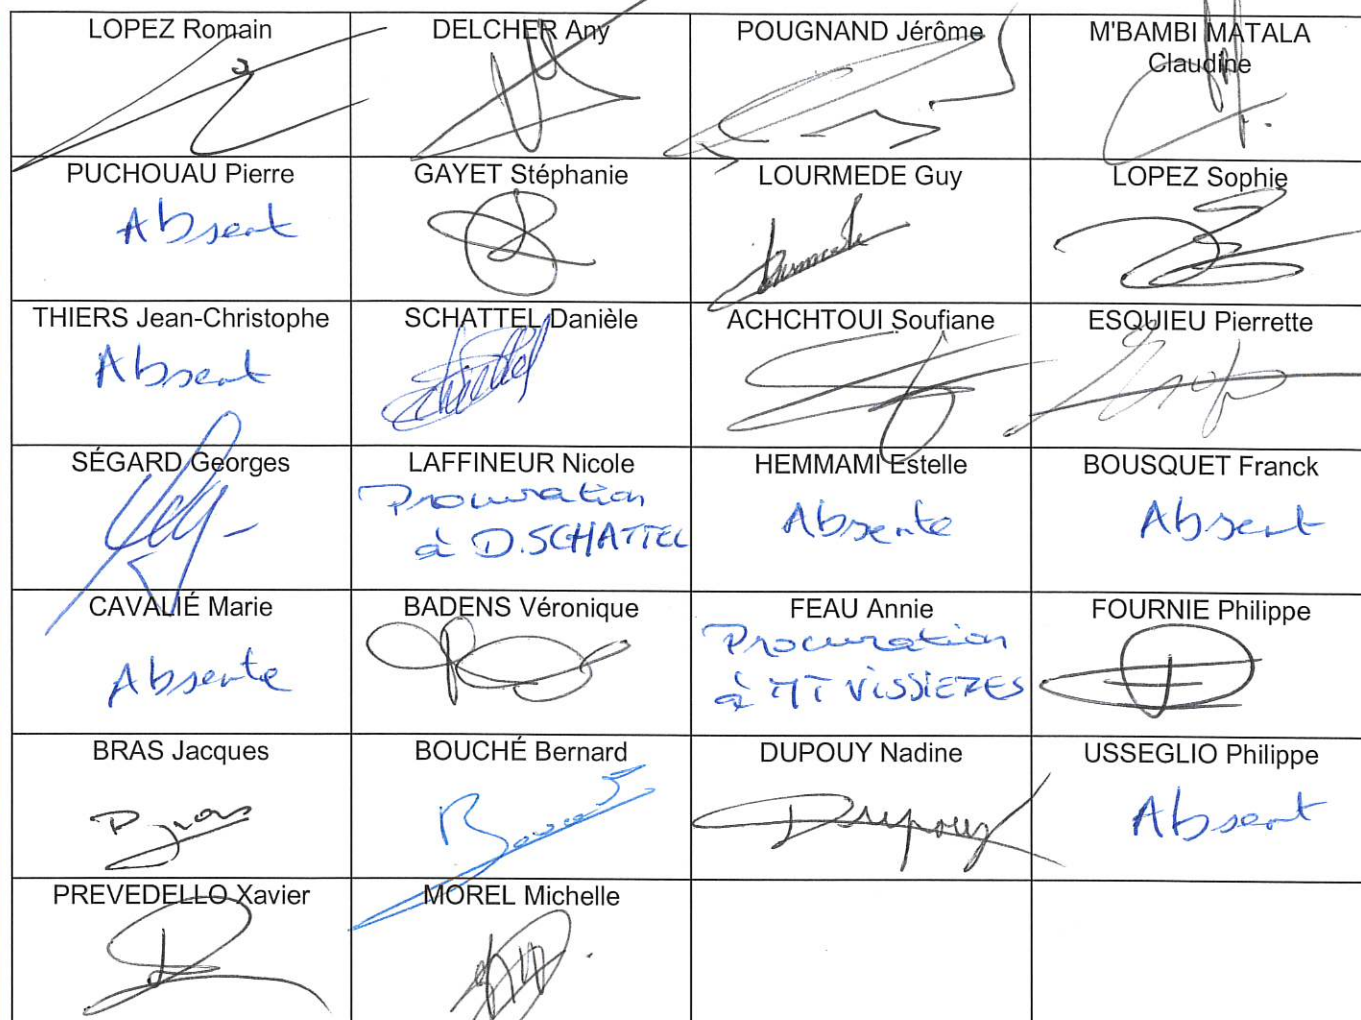 LOPEZ Romain
DELCHER Any
POUGNAND Jérôme
M'BAMBI MATALA
Claudine
PUCHOUAU Pierre
Absent
GAYET Stéphanie
LOURMEDE Guy
LOPEZ Sophie
THIERS Jean-Christophe
Absent
SCHATTEL Danièle
ACHCHTOUI Soufiane
ESQUIEU Pierrette
SÉGARD Georges
LAFFINEUR Nicole
Procuration
à D.SCHATTEL
HEMMAMI Estelle
Absente
BOUSQUET Franck
Absent
CAVALIÉ Marie
Absente
BADENS Véronique
FEAU Annie
Procuration
à MT VISSIERES
FOURNIE Philippe
BRAS Jacques
BOUCHÉ Bernard
DUPOUY Nadine
Dupouy
USSEGLIO Philippe
Absent
PREVEDELLO Xavier
MOREL Michelle